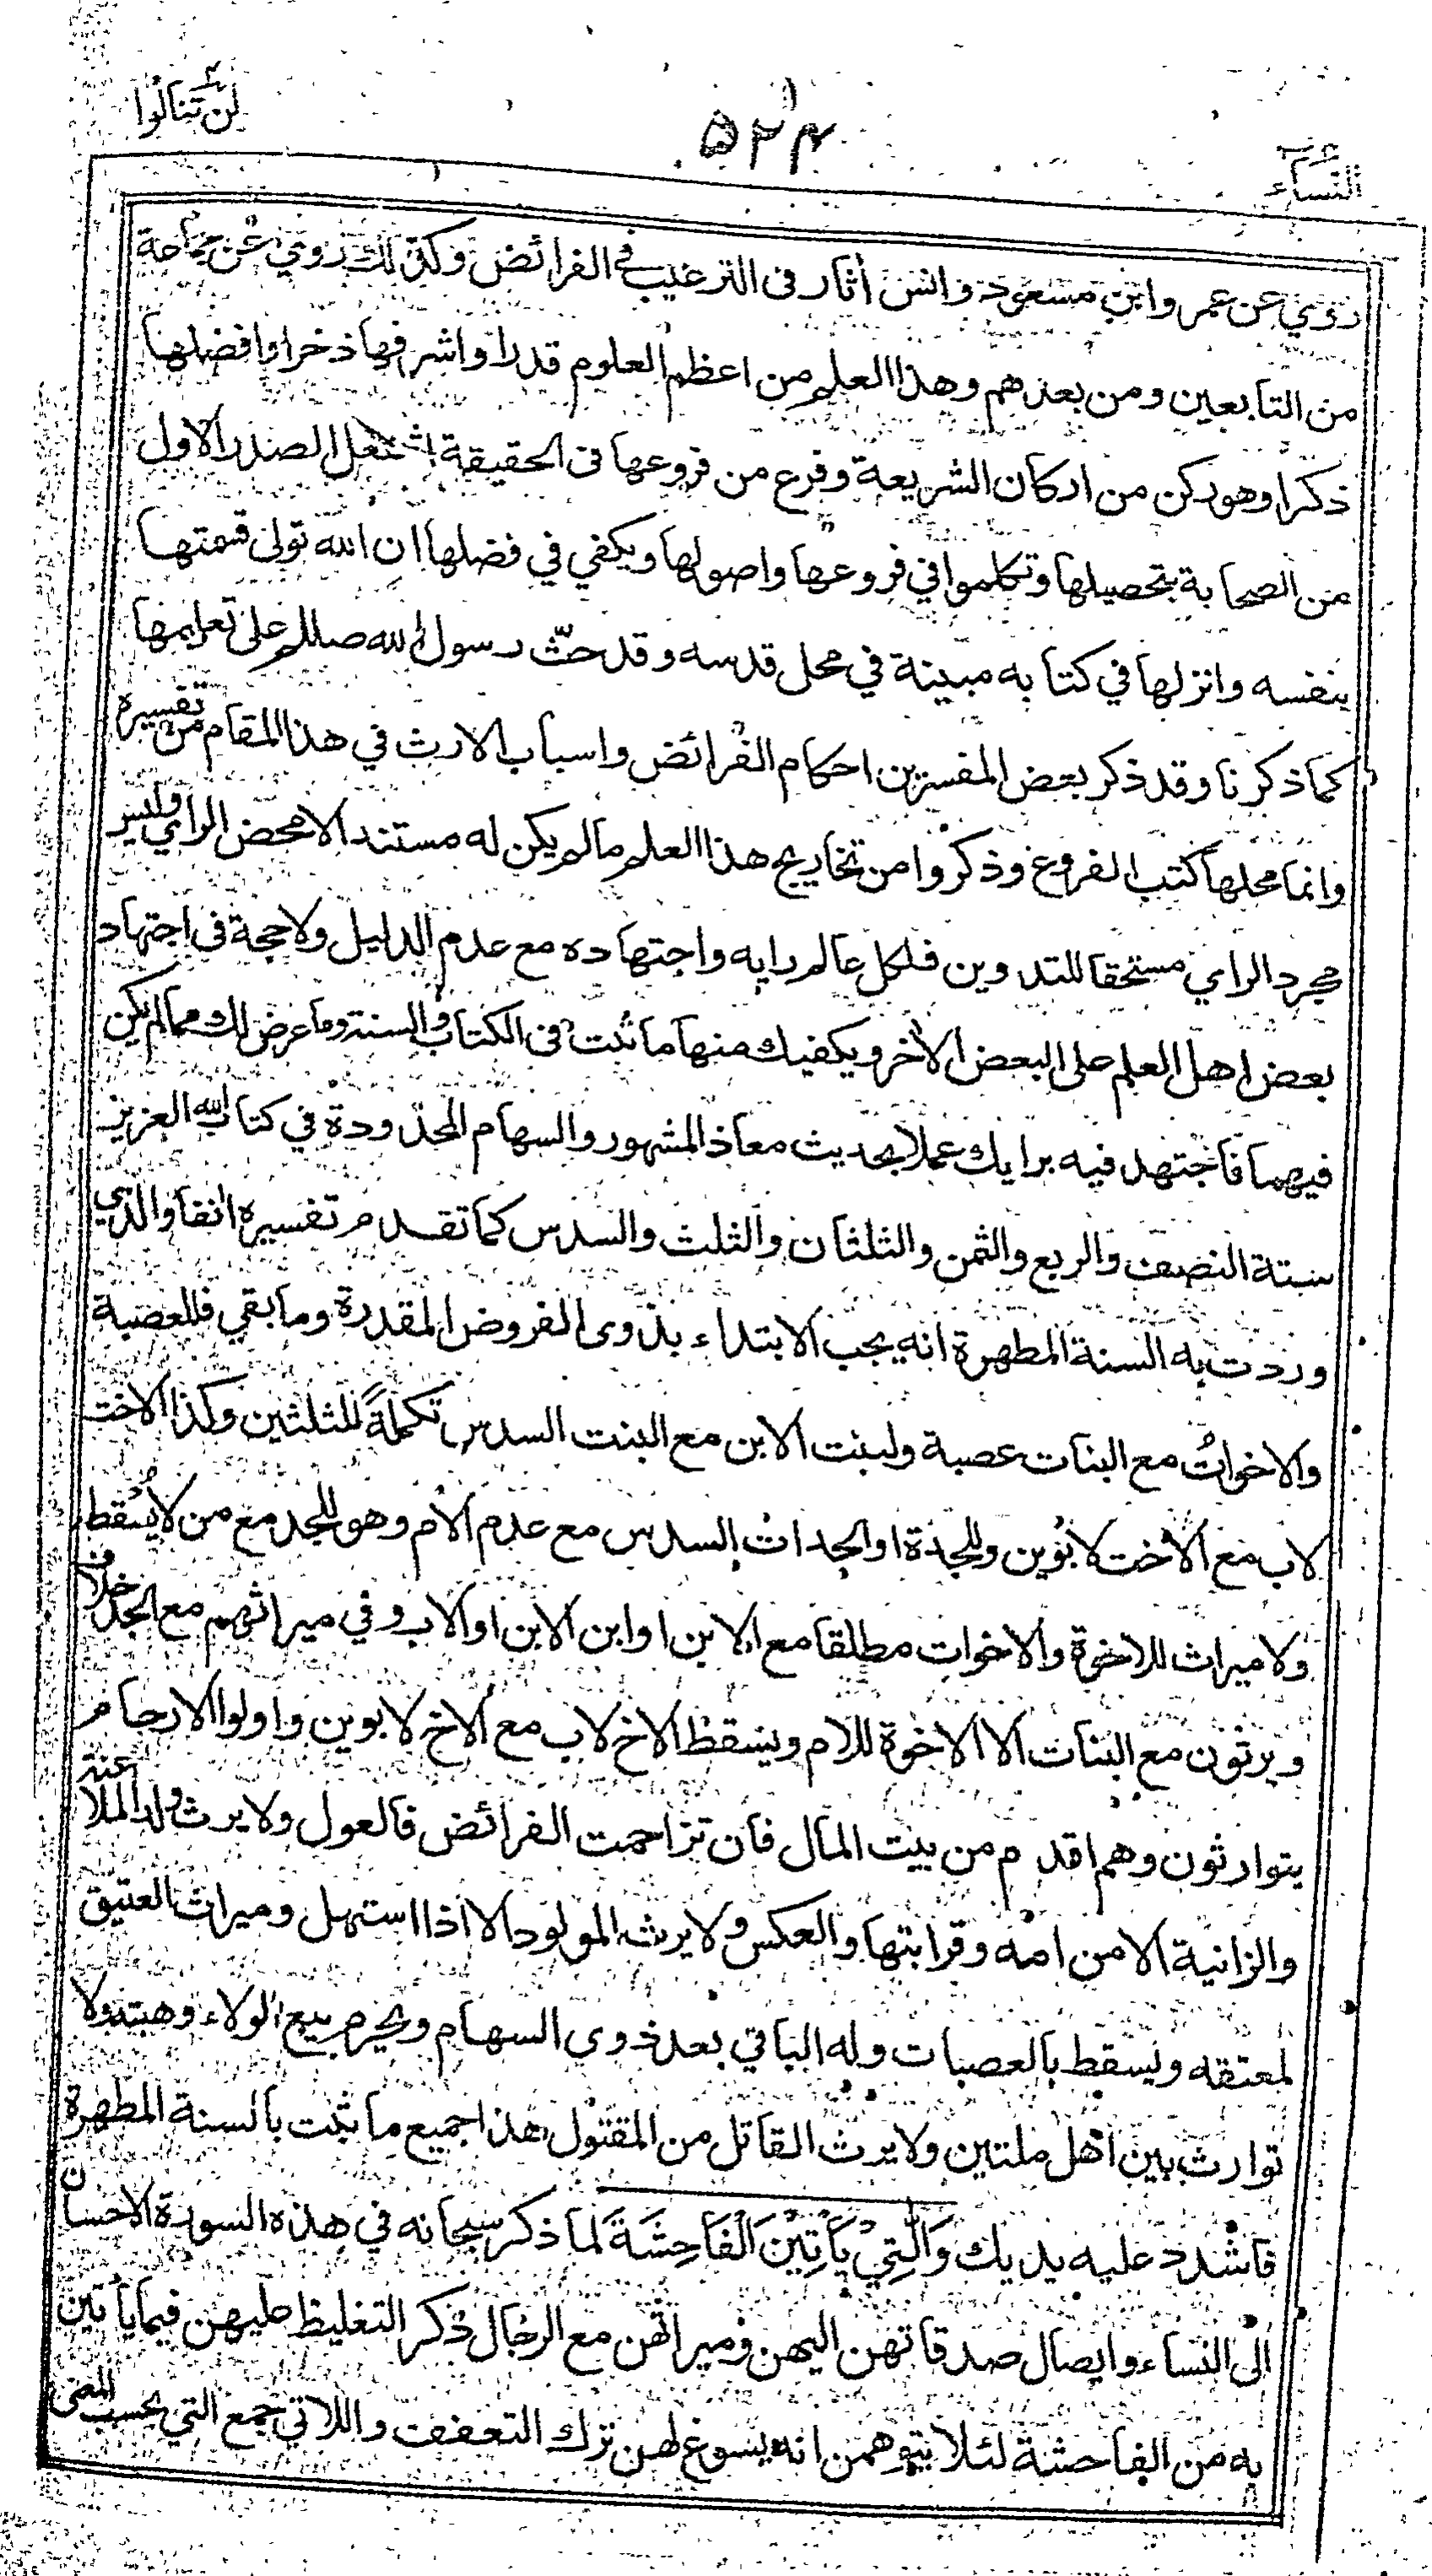 لن تنالوا
٥٢٤
النساء
روي عن عمر وابن مسعود وانس أثار فى الترغيب في الفرائض وكذلك روي عن جماعة
من التابعين ومن بعدهم وهذا العلم من اعظم العلوم قدرا واشرفها ذخرا وافضلها
ذكرا وهو ركن من اركان الشريعة وفرع من فروعها فى الحقيقة اشتغل الصدر الاول
من الصحابة بتحصيلها وتكلموا في فروعها واصولها ويكفي في فضلها ان الله تولى قسمتها
بنفسه وانزلها في كتابه مبينة في محل قدسه وقد حثّ رسول الله صللم على تعليمها
كما ذكرنا وقد ذكر بعض المفسرين احكام الفرائض واسباب الارث في هذا المقام من تفسيره
وانما محلها كتب الفروع وذكروا من تخاريج هذا العلم ما لم يكن له مستند الا محض الراي وليس
مجرد الراي مستحقا للتدوين فلكل عالم رايه واجتهاده مع عدم الدليل ولا حجة فى اجتهاد
بعض اهل العلم على البعض الأخر ويكفيك منها ما ثبت فى الكتاب والسنة وما عرض لك مما لم يكن
فيهما فاجتهد فيه برايك عملا بحديث معاذ المشهور والسهام المحدودة في كتاب الله العزيز
ستة النصف والربع والثمن والثلثان والثلث والسدس كما تقدم تفسيره انفا والذي
وردت به السنة المطهرة انه يجب الابتداء بذوى الفروض المقدرة وما بقي فللعصبة
والاخوات مع البنات عصبة ولبنت الابن مع البنت السدس تكملةً للثلثين وكذا الاخت
لاب مع الأخت لابوين وللجدة او الجدات السدس مع عدم الأم وهو للجد مع من لا يسقط
ولا ميراث للاخوة والاخوات مطلقا مع الابن او ابن الابن او الاب وفي ميراثهم مع الجد خلاف
ويرثون مع البنات الا الاخوة للام ويسقط الاخ لاب مع الاخ لابوين واولوا الارحام
يتوارثون وهم اقدم من بيت المال فان تزاحمت الفرائض فالعول ولا يرث ولد الملاعنة
والزانية الا من امه وقرابتها والعكس ولا يرث المولود الا اذا استهل وميراث العتيق
لمعتقه ويسقط بالعصبات وله الباقي بعد ذوى السهام ويحرم بيع الولاء وهبته ولا
توارث بين اهل ملتين ولا يرث القاتل من المقتول هذا جميع ما ثبت بالسنة المطهرة
فاشدد عليه يديك وَالّٰتِيْ يَأْتِيْنَ الْفَاحِشَةَ لما ذكر سبحانه في هذه السورة الاحسان
الى النساء وايصال صدقاتهن اليهن وميراثهن مع الرجال ذكر التغليظ عليهن فيما يأتين
به من الفاحشة لئلا يتوهمن انه يسوغ لهن ترك التعفف واللاتي جمع التي بحسب المعنى